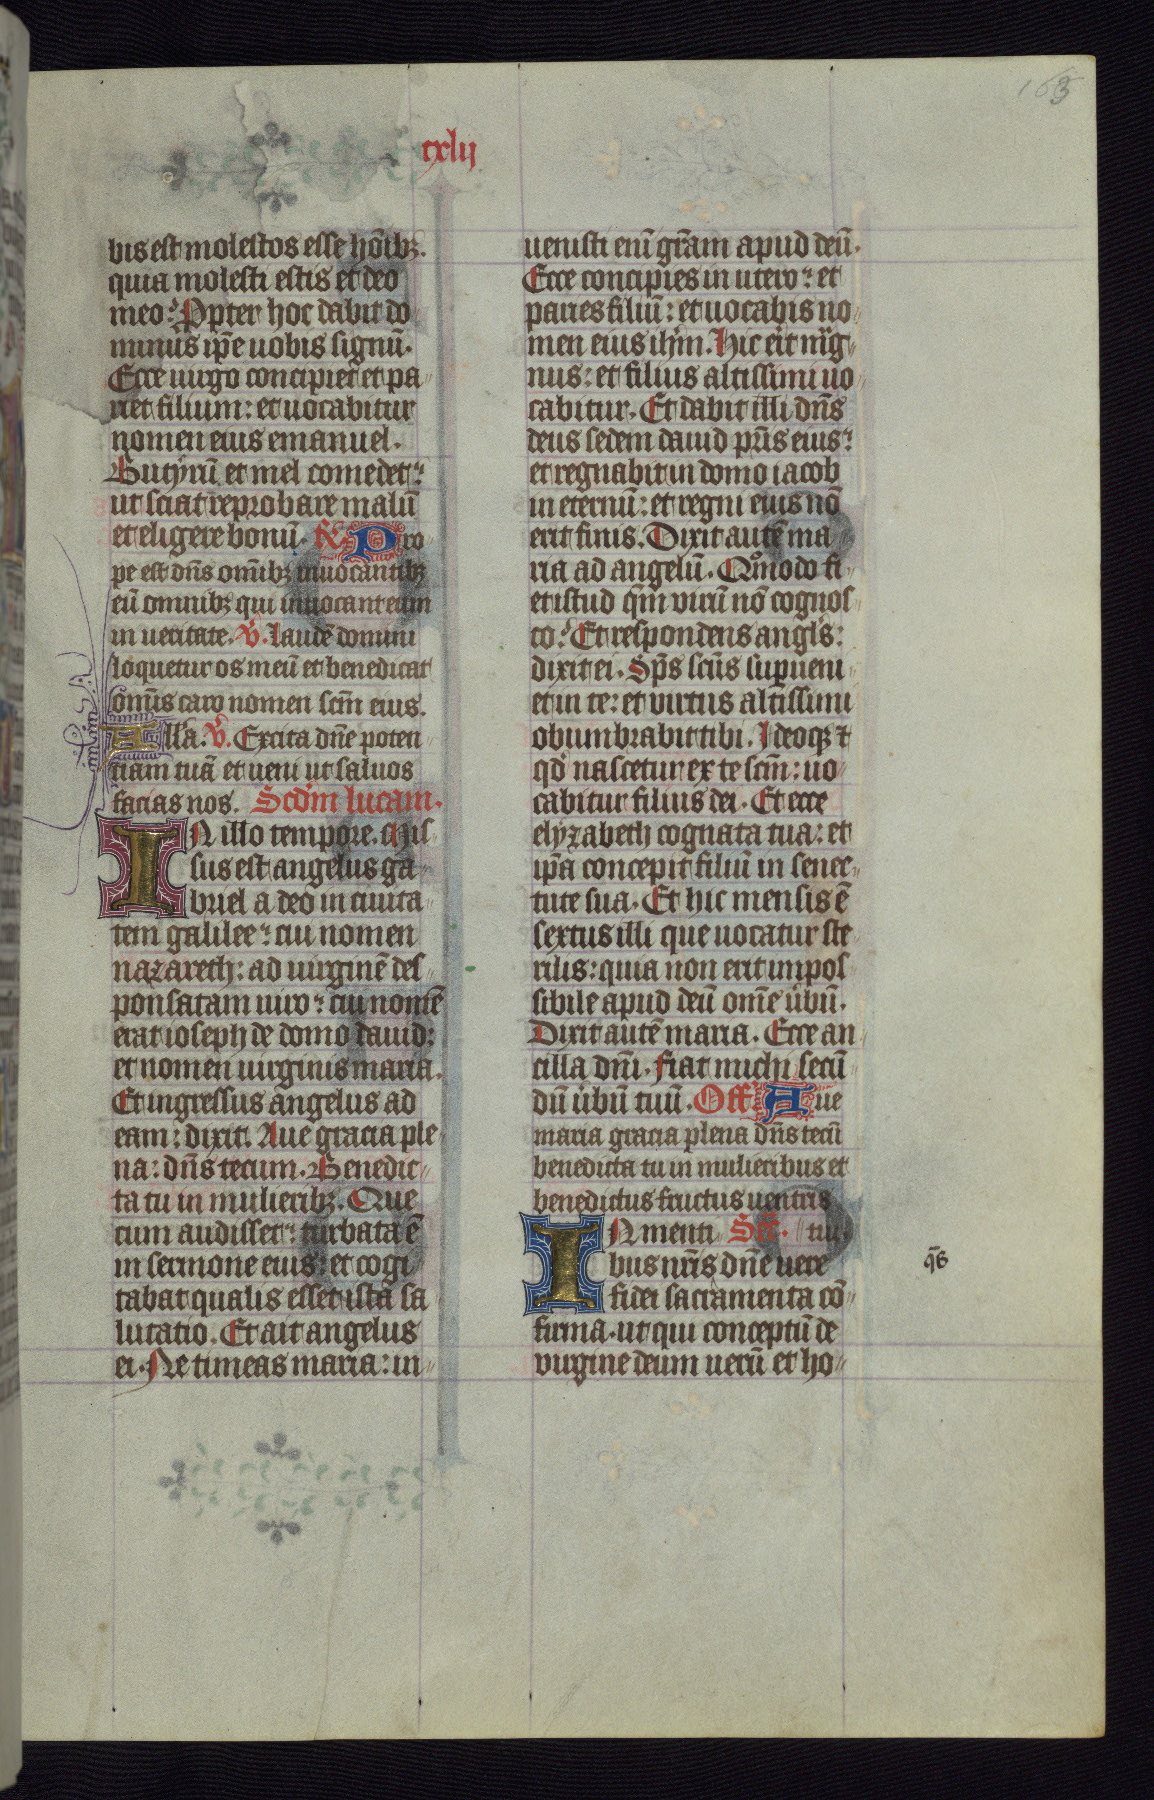 163
cxlij
bis est molestos esse hōībꝫ.
quia molesti estis et deo
meo? Ppter hoc dabit do
minus ip̄e uobis signū.
Ecce uirgo concipiet et pa
riet filium: et uocabitur
nomen eius emanuel.
Butyrū et mel comedet:
ut sciat reprobare malū
et eligere bonū. R̷ Pro
pe est dn̄s om̄ibꝫ inuocantibꝫ
eū omnibꝫ qui inuocant eum
in ueritate. V̷. laudē domini
loquetur os meū et benedicat
omīs caro nomen sc̄m eius.
All'a. V̷. Excita dn̄e poten
tiam tuā et ueni ut saluos
facias nos. Scdm̄ lucam.
IN illo tempore. Mis
sus est angelus ga
briel a deo in ciuita
tem galilee: cui nomen
nazareth: ad uirginē des
ponsatam uiro: cui nomē
erat ioseph de domo dauid:
et nomen uirginis maria.
Et ingressus angelus ad
eam: dixit. Aue gracia ple
na: dn̄s tecum. Benedic
ta tu in mulieribꝫ. Que
cum audisset: turbata ē
in sermone eius: et cogi
tabat qualis esset ista sa
lutatio. Et ait angelus
ei. Ne timeas maria: in
uenisti eni̅ gr̄am apud deū.
Ecce concipies in utero: et
paries filiū: et uocabis no
men eius ih̄m. Hic erit mag
nus: et filius altissimi uo
cabitur. Et dabit illi dn̄s
deus sedem dauid pr̄is eius:
et regnabit in domo iacob
in eternū: et regni eius nō
erit finis. Dixit autē ma
ria ad angelū. Quomodo fi
et istud qm̄ virū nō cognos
co? Et respondens angl's:
dixit ei. Sp̄s scūs supueni
et in te: et virtus altissimi
obumbrabit tibi. Ideoqꝫ ⁊
qd̄ nascetur ex te scm̄: uo
cabitur filius dei. Et ecce
elyzabeth cognata tua: et
ip̄a concepit filiū in senec
tute sua. Et hic mensis ē
sextus illi que uocatur ste
rilis: quia non erit impos
sibile apud deū om̄e u̇bū.
Dixit autē maria. Ecce an
cilla dn̄i. fiat michi secū
dū u̇bū tuū. Off Aue
maria gracia plena dn̄s tecū
benedicta tu in mulieribus et
benedictus fructus uentris
IN menti Secr̄. tui.
bus nr̄is dn̄e uere
qs̄
fidei sacramenta cō
firma. ut qui conceptū de
virgine deum uerū et ho